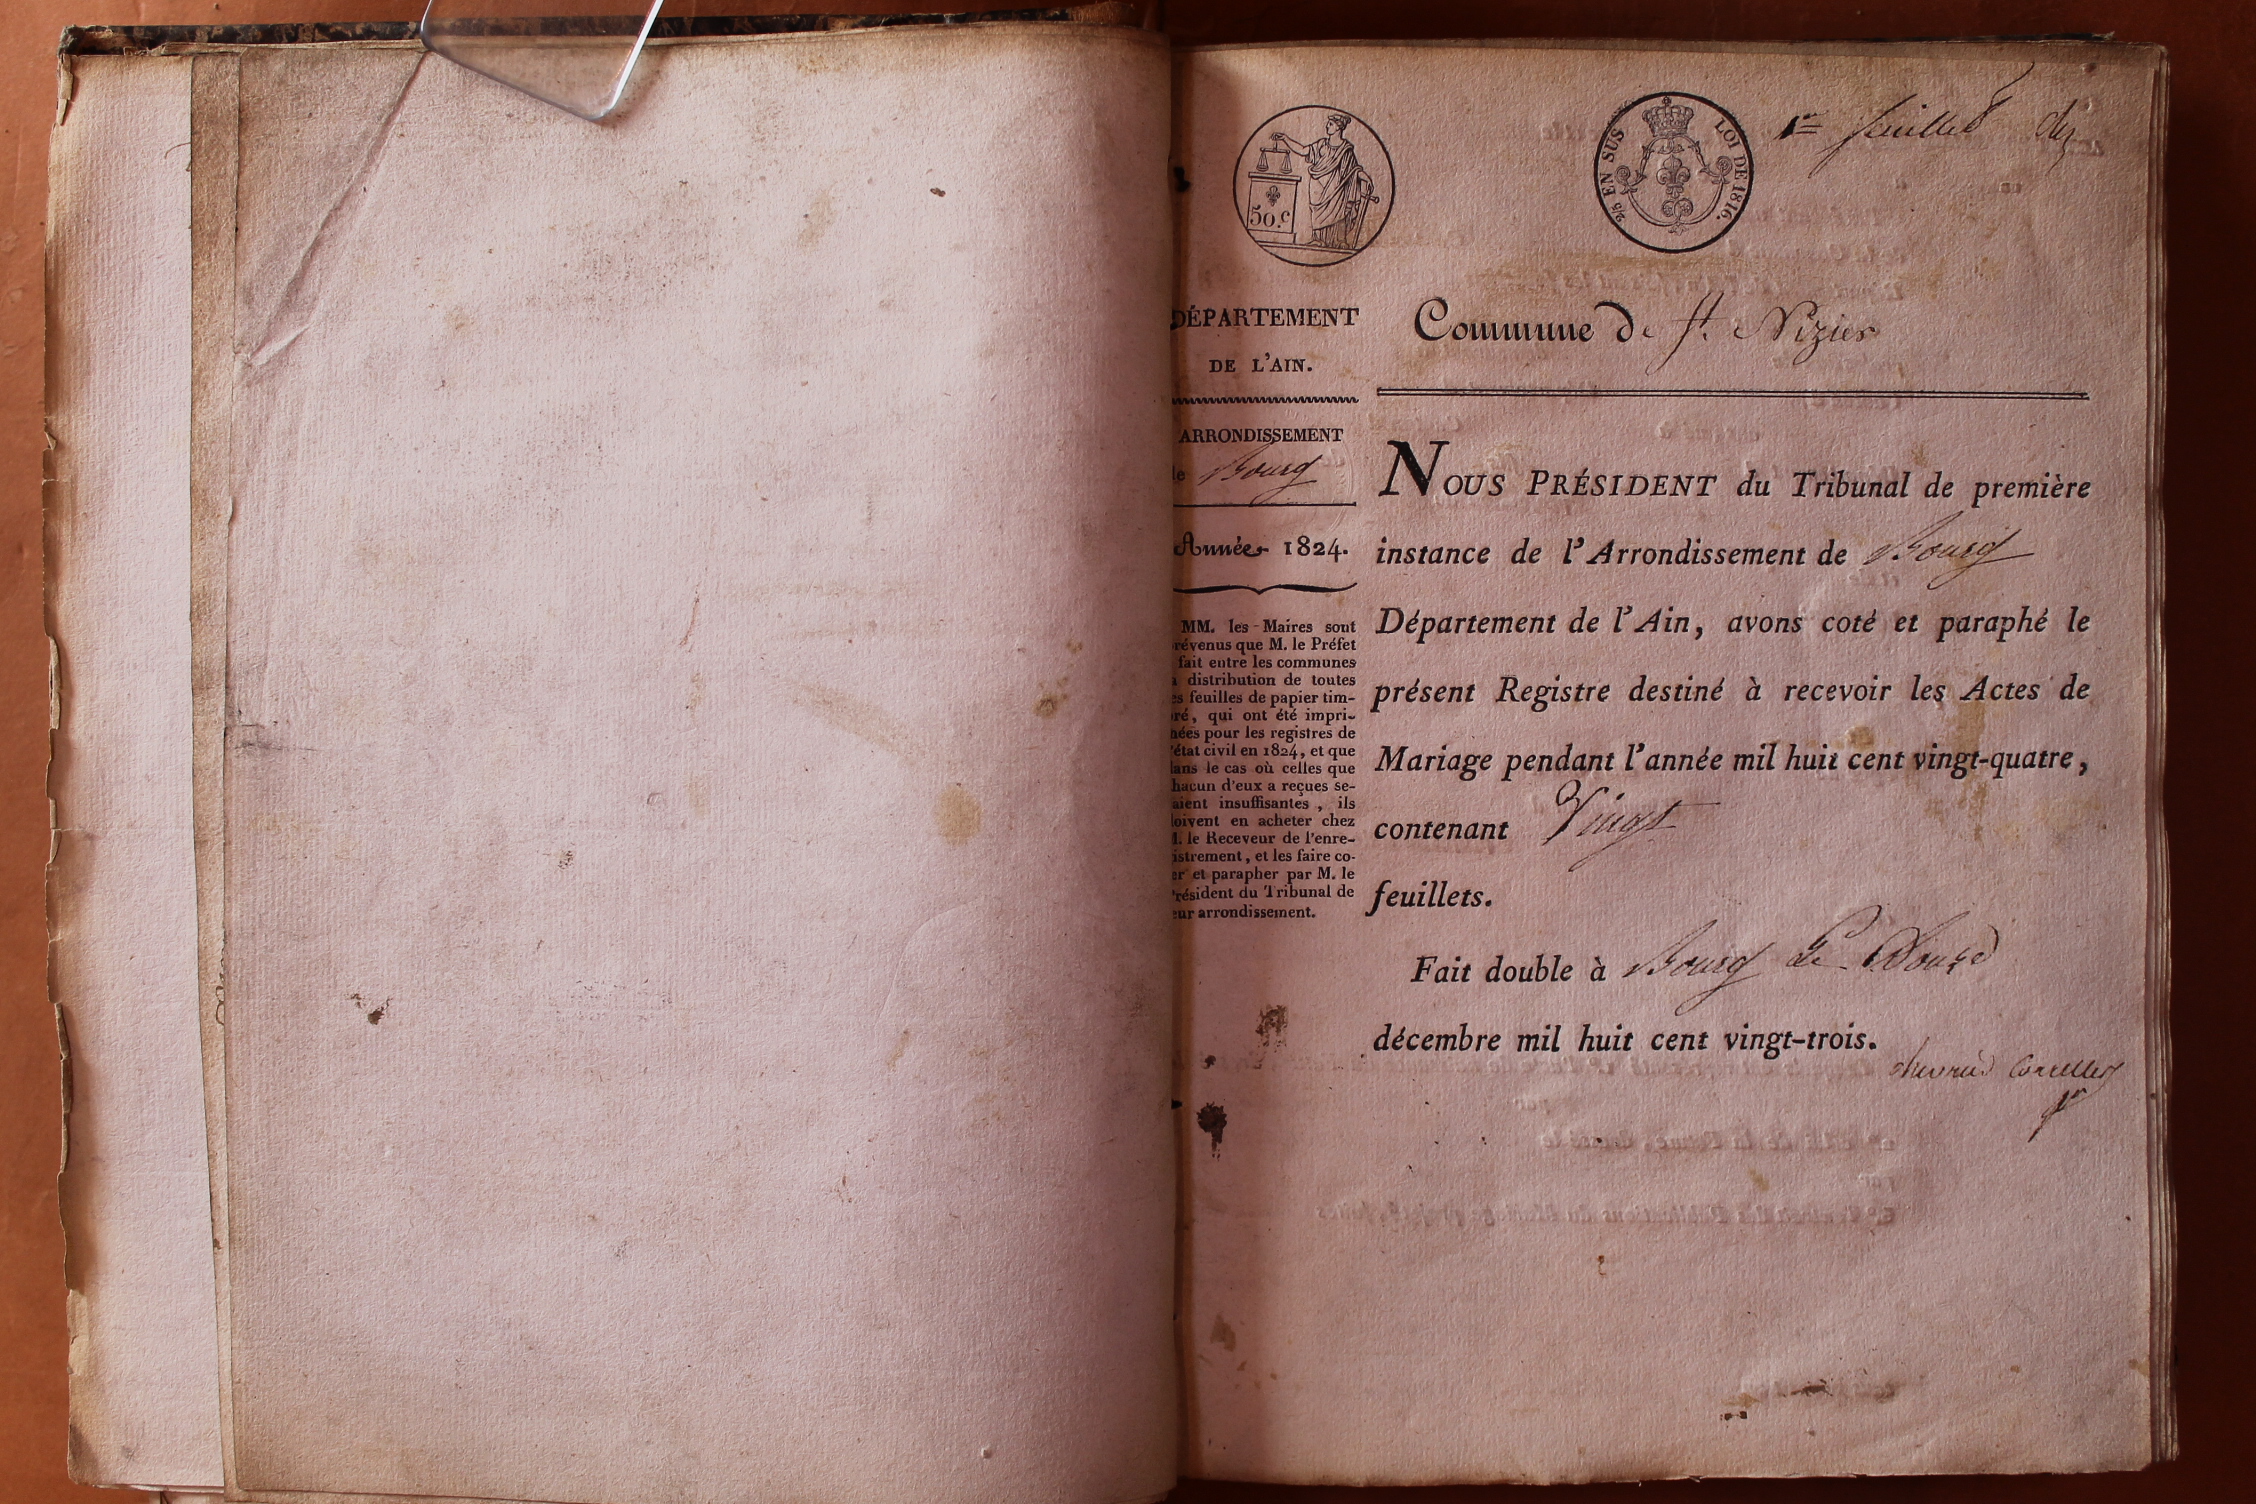 50.c
25 EN SUS
LOI DE 1816.
1er feuillet
DÉPARTEMENT
DE L'AIN.
ARRONDISSEMENT
de Bourg
Année 1824.
MM. les Maires sont
révenus que M. le Préfet
fait entre les communes
a distribution de toutes
es feuilles de papier tim-
ré, qui ont été impri-
ées pour les registres de
'état civil en 1824, et que
ans le cas où celles que
hacun d'eux a reçues se-
aient insuffisantes, ils
oivent en acheter chez
M. le Receveur de l'enre-
istrement, et les faire co-
er et parapher par M. le
Président du Tribunal de
eur arrondissement.
Commune de St. Nizier
NOUS PRÉSIDENT du Tribunal de première
instance de l'Arrondissement de Bourg
Département de l'Ain, avons coté et paraphé le
présent Registre destiné à recevoir les Actes de
Mariage pendant l'année mil huit cent vingt-quatre,
contenant Vingt
feuillets.
Fait double à Bourg Le Douze
décembre mil huit cent vingt-trois.